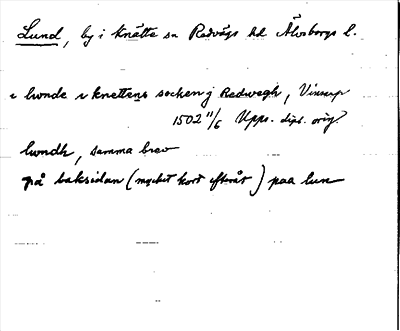 Lund, by i Knätte sn Redvägs hd Älvsborgs l.
i lwnde i knettens socken j Redwegh, Vinsarp
1502 11/6 Upps. dipl. orig.
lwndh, samma brev
på baksidan (mycket kort efteråt) paa lun